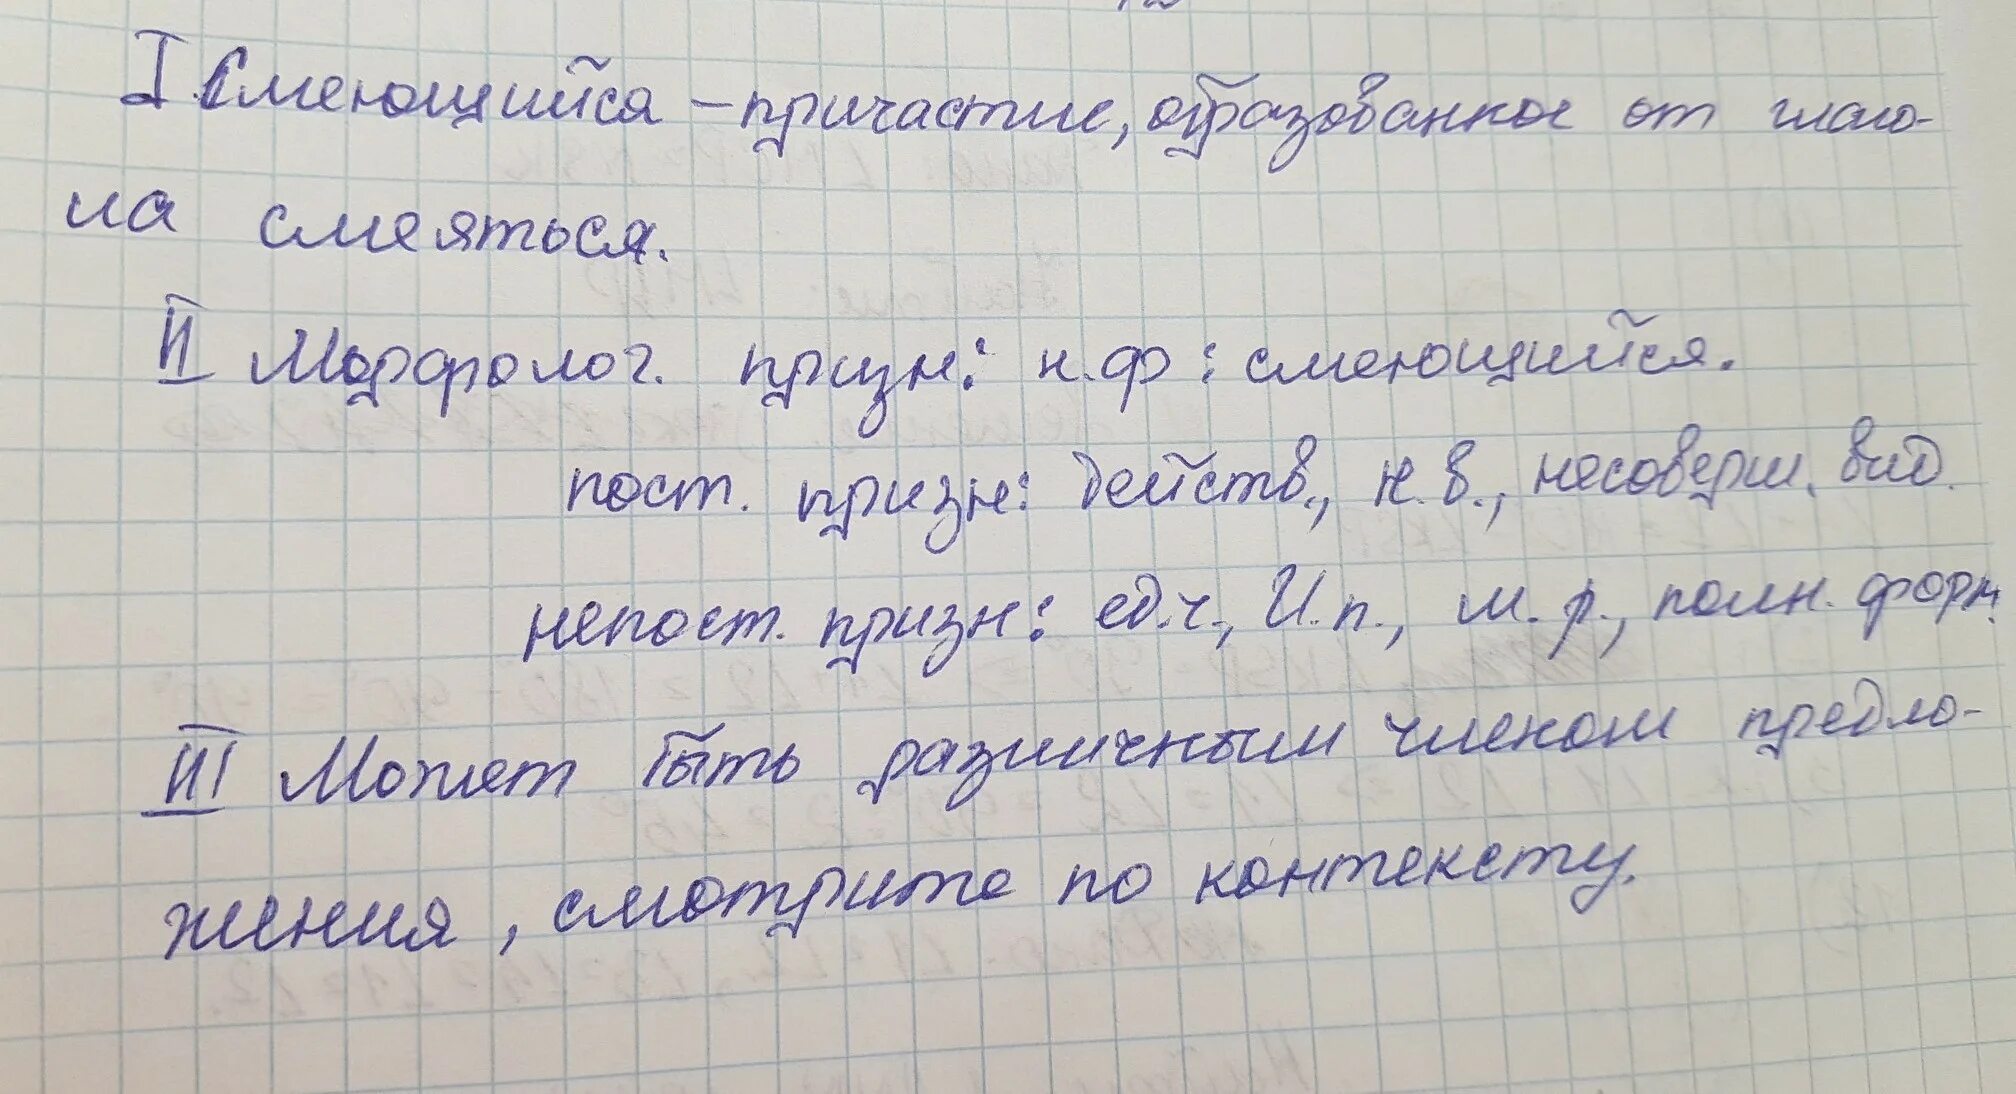 I. Смеющийся – причастие, образованное от глаго-
ла смеяться.
II Морфолог. призн: н.ф: смеющийся.
пост. призн: действ., н.в., несоверш. вид.
непост. призн: ед.ч., И.п., м.р., полн. форм.
III Может быть различным членом предло-
жения, смотрите по контексту.